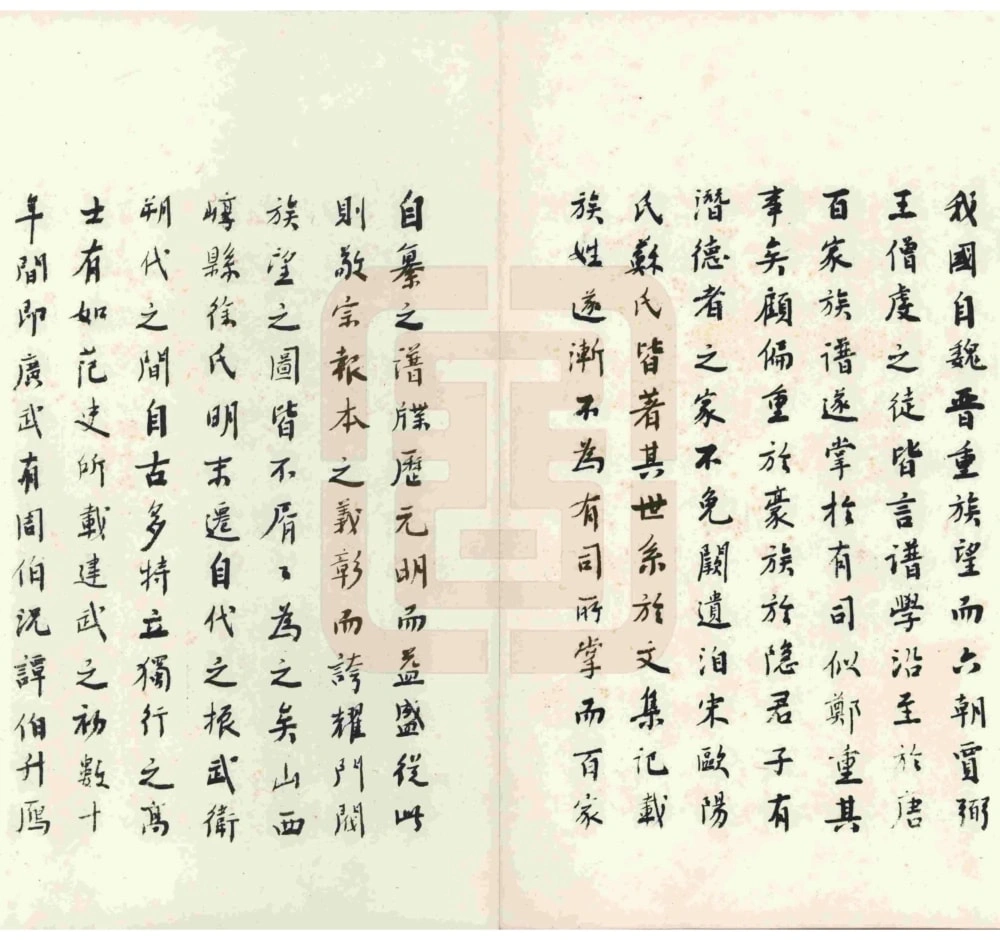 我國自魏晉重族望而六朝賈弼
王僧虔之徒皆言譜學沿至於唐
百家族譜遂掌於有司似鄭重其
事矣顧偏重於豪族於隐君子有
潛德者之家不免闕遺洎宋歐陽
氏蘇氏皆著其世系於文集記載
族姓遂漸不為有司所掌而百家
自纂之譜牒歷元明而益盛從此
則敬宗報本之義彰而誇耀門閥
族望之圖皆不屑々為之矣山西
崞縣徐氏明末遷自代之振武衛
朔代之間自古多特立獨行之高
士有如范史所載建武之初數十
年間即廣武有周伯況譚伯升鴈